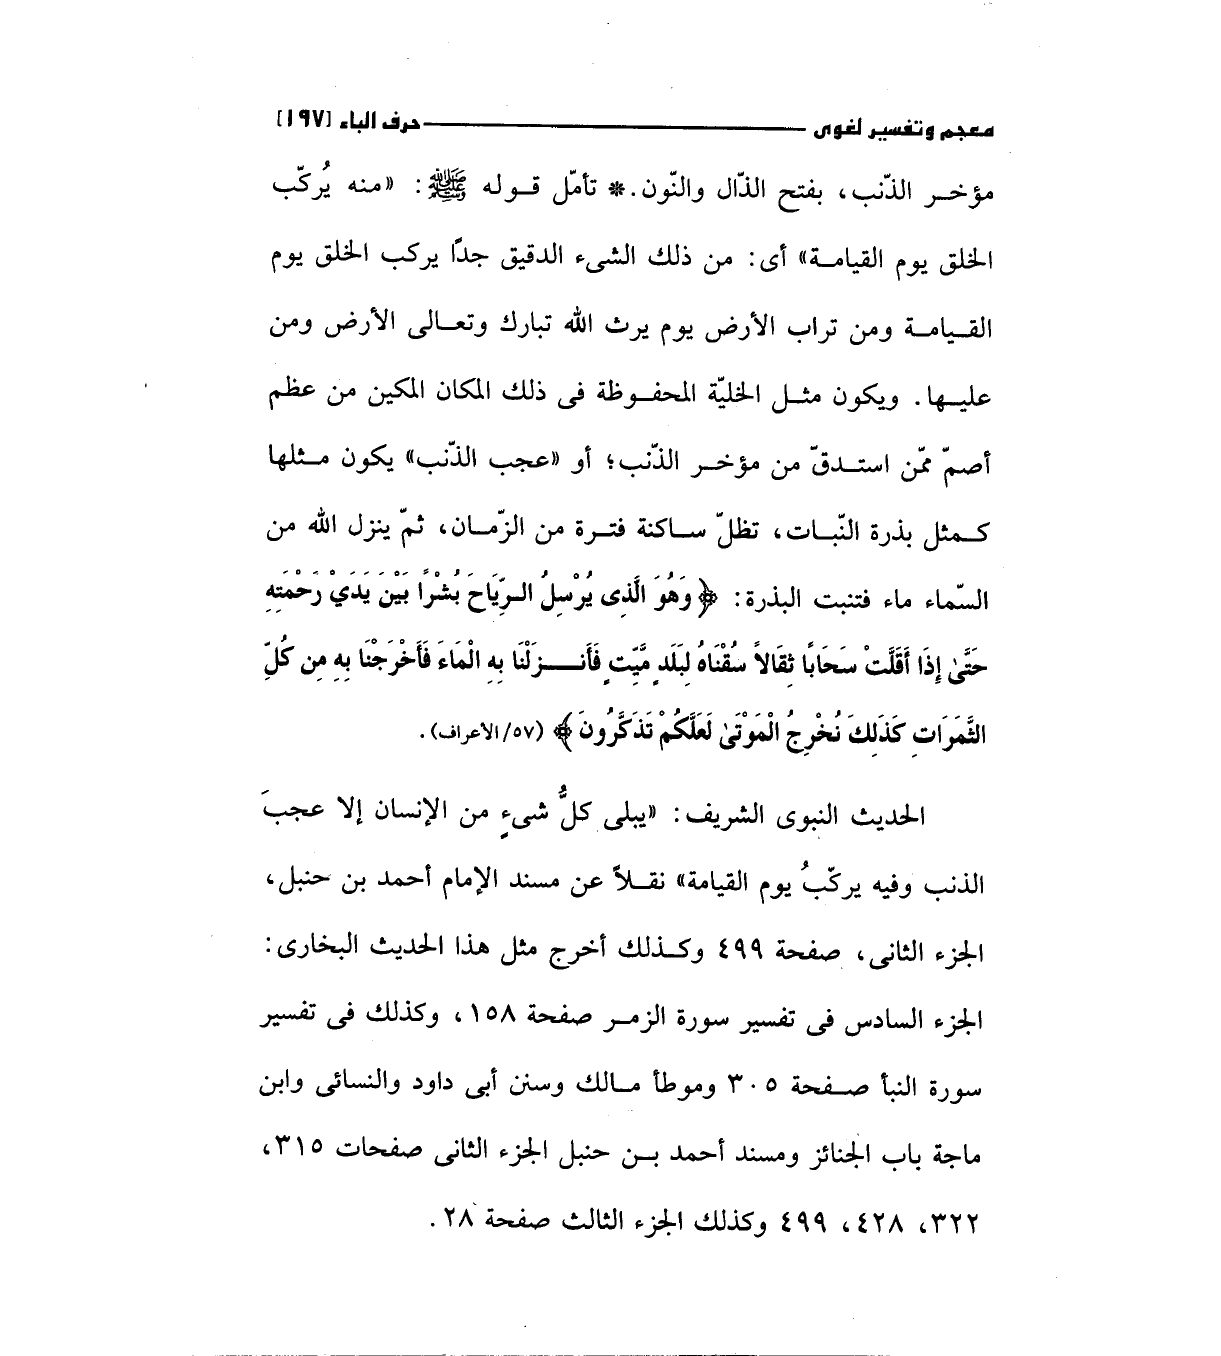 معجم وتفسير لغوى حرف الباء [١٩٧]
مؤخر الذّنب، بفتح الذّال والنّون.* تأمّل قوله ﷺ: «منه يُركّب
الخلق يوم القيامة» أى: من ذلك الشىء الدقيق جدًا يركب الخلق يوم
القيامة ومن تراب الأرض يوم يرث الله تبارك وتعالى الأرض ومن
عليها. ويكون مثل الخليّة المحفوظة فى ذلك المكان المكين من عظم
أصمّ ممّن استدقّ من مؤخر الذّنب؛ أو «عجب الذّنب» يكون مثلها
كمثل بذرة النّبات، تظلّ ساكنة فترة من الزّمان، ثمّ ينزل الله من
السّماء ماء فتنبت البذرة: ﴿وَهُوَ الَّذِى يُرْسِلُ الرِّيَاحَ بُشْرًا بَيْنَ يَدَيْ رَحْمَتِهِ
حَتَّىٰ إِذَا أَقَلَّتْ سَحَابًا ثِقَالاً سُقْنَاهُ لِبَلَدٍ مَّيِّتٍ فَأَنزَلْنَا بِهِ الْمَاءَ فَأَخْرَجْنَا بِهِ مِن كُلِّ
الثَّمَرَاتِ كَذَلِكَ نُخْرِجُ الْمَوْتَىٰ لَعَلَّكُمْ تَذَكَّرُونَ﴾ (٥٧/الاعراف).
الحديث النبوى الشريف: «يبلى كلُّ شىءٍ من الإنسان إلا عجبَ
الذنب وفيه يركّبُ يوم القيامة» نقلاً عن مسند الإمام أحمد بن حنبل،
الجزء الثانى، صفحة ٤٩٩ وكذلك أخرج مثل هذا الحديث البخارى:
الجزء السادس فى تفسير سورة الزمر صفحة ١٥٨، وكذلك فى تفسير
سورة النبأ صفحة ٣٠٥ وموطأ مالك وسنن أبى داود والنسائى وابن
ماجة باب الجنائز ومسند أحمد بن حنبل الجزء الثانى صفحات ٣١٥،
٣٢٢، ٤٢٨، ٤٩٩ وكذلك الجزء الثالث صفحة ٢٨.